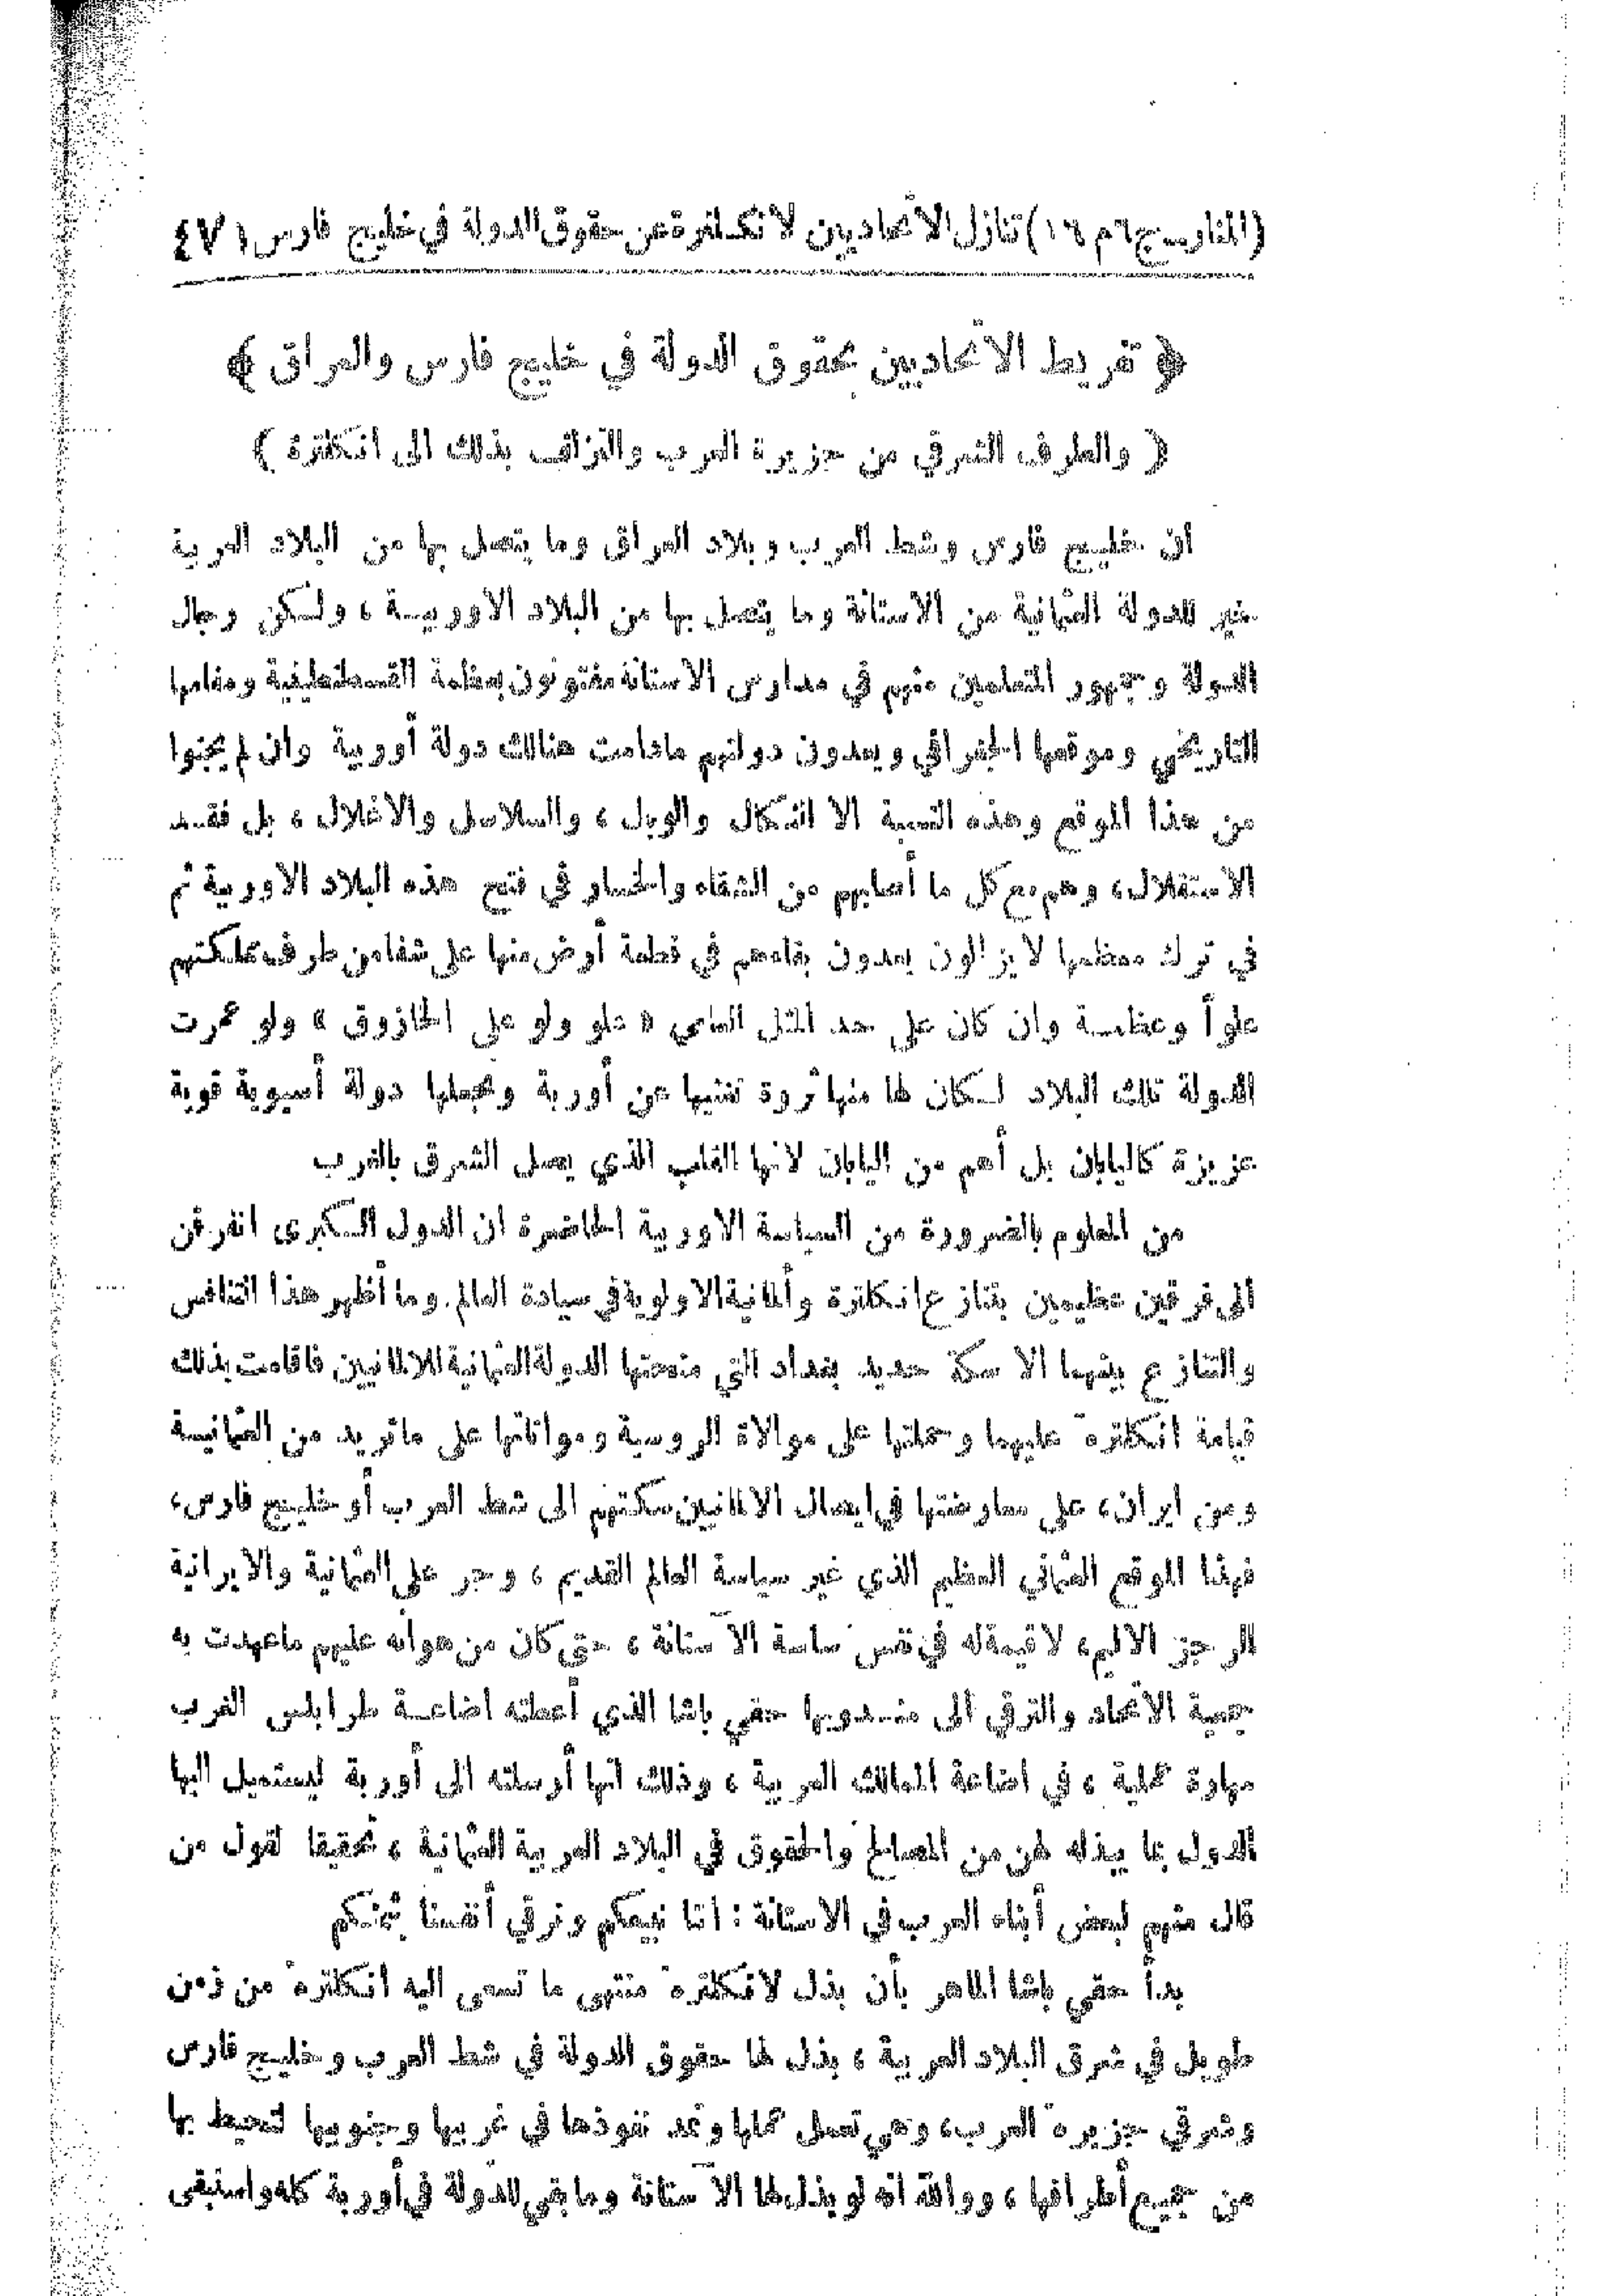 (المنار ـ ج ٦ م ١٦) تنازل الاتحاديين لانكلترة عن حقوق الدولة في خليج فارس ٤٧١
﴿ تفريط الاتحاديين بحقوق الدولة في خليج فارس والعراق ﴾
( والطرف الشرقي من جزيرة العرب والتزلف بذلك الى انكلترة )
ان خليج فارس وشط العرب وبلاد العراق وما يتصل بها من البلاد العربية
خير للدولة العثمانية من الاستانة وما يتصل بها من البلاد الاوربية ، ولكن رجال
الدولة وجمهور المتعلمين منهم في مدارس الاستانة مفتونون بعظمة القسطنطينية ومقامها
التاريخي وموقعها الجغرافي ويعدون دولتهم مادامت هنالك دولة أوربية وان لم يجنوا
من هذا الموقع وهذه النسبة الا النكال والوبل ، والسلاسل والاغلال ، بل فقد
الاستقلال ، وهم مع كل ما أصابهم من الشقاء والخسار في فتح هذه البلاد الاوربية ثم
في ترك معظمها لايزالون يعدون بقاءهم في قطعة أرض منها على شفا من طرف مملكتهم
علواً وعظمة وان كان على حد المثل العامي « علو ولو على الخازوق » ولو عمرت
الدولة تلك البلاد لكان لها منها ثروة تغنيها عن أوربة وتجعلها دولة أسيوية قوية
عزيزة كاليابان بل أهم من اليابان لانها القلب الذي يصل الشرق بالغرب
من المعلوم بالضرورة من السياسة الاوربية الحاضرة ان الدول الكبرى انفرقن
الى فرقين عظيمين بتنازع انكلترة وألمانية الاولوية في سيادة العالم. وما أظهر هذا التنافس
والتنازع بينهما الا سكة حديد بغداد التي منحتها الدولة العثمانية للالمانيين فاقامت بذلك
قيامة انكلترة عليهما وحملتها على موالاة الروسية ومواتاتها على ماتريد من العثمانية
ومن ايران ، على معارضتها في ايصال الالمانيين سكتهم الى شط العرب أو خليج فارس ،
فهذا الموقع العثماني العظيم الذي غير سياسة العالم القديم ، وجر على العثمانية والايرانية
الرجز الاليم ، لاقيمة له في نفس ساسة الآستانة ، حتى كان من هوانه عليهم ماعهدت به
جمعية الاتحاد والترقي الى مندوبها حقي باشا الذي أعطته اضاعة طرابلس الغرب
مهارة عملية ، في اضاعة الممالك العربية ، وذلك انها أرسلته الى أوربة ليستميل اليها
الدول بما يبذله لهن من المصالح والحقوق في البلاد العربية العثمانية ، تحقيقا لقول من
قال منهم لبعض أبناء العرب في الاستانة : اننا نبيعكم ونرقي أنفسنا بثمنكم
بدأ حقي باشا الماهر بأن بذل لانكلترة منتهى ما تسعى اليه انكلترة من زمن
طويل في شرق البلاد العربية ، بذل لها حقوق الدولة في شط العرب وخليج فارس
وشرقي جزيرة العرب ، وهي تعمل عملها وتمد نفوذها في غربيها وجنوبيها لتحيط بها
من جميع أطرافها ، ووالله انه لو بذل لها الآستانة وما بقي للدولة في أوربة كله واستبقى